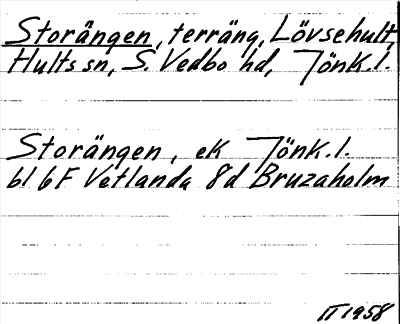 Storängen, terräng, Lövsehult,
Hults sn, S. Vedbo hd, Jönk. l.
Storängen, ek Jönk. l.
bl 6F Vetlanda 8d Bruzaholm
II 1958